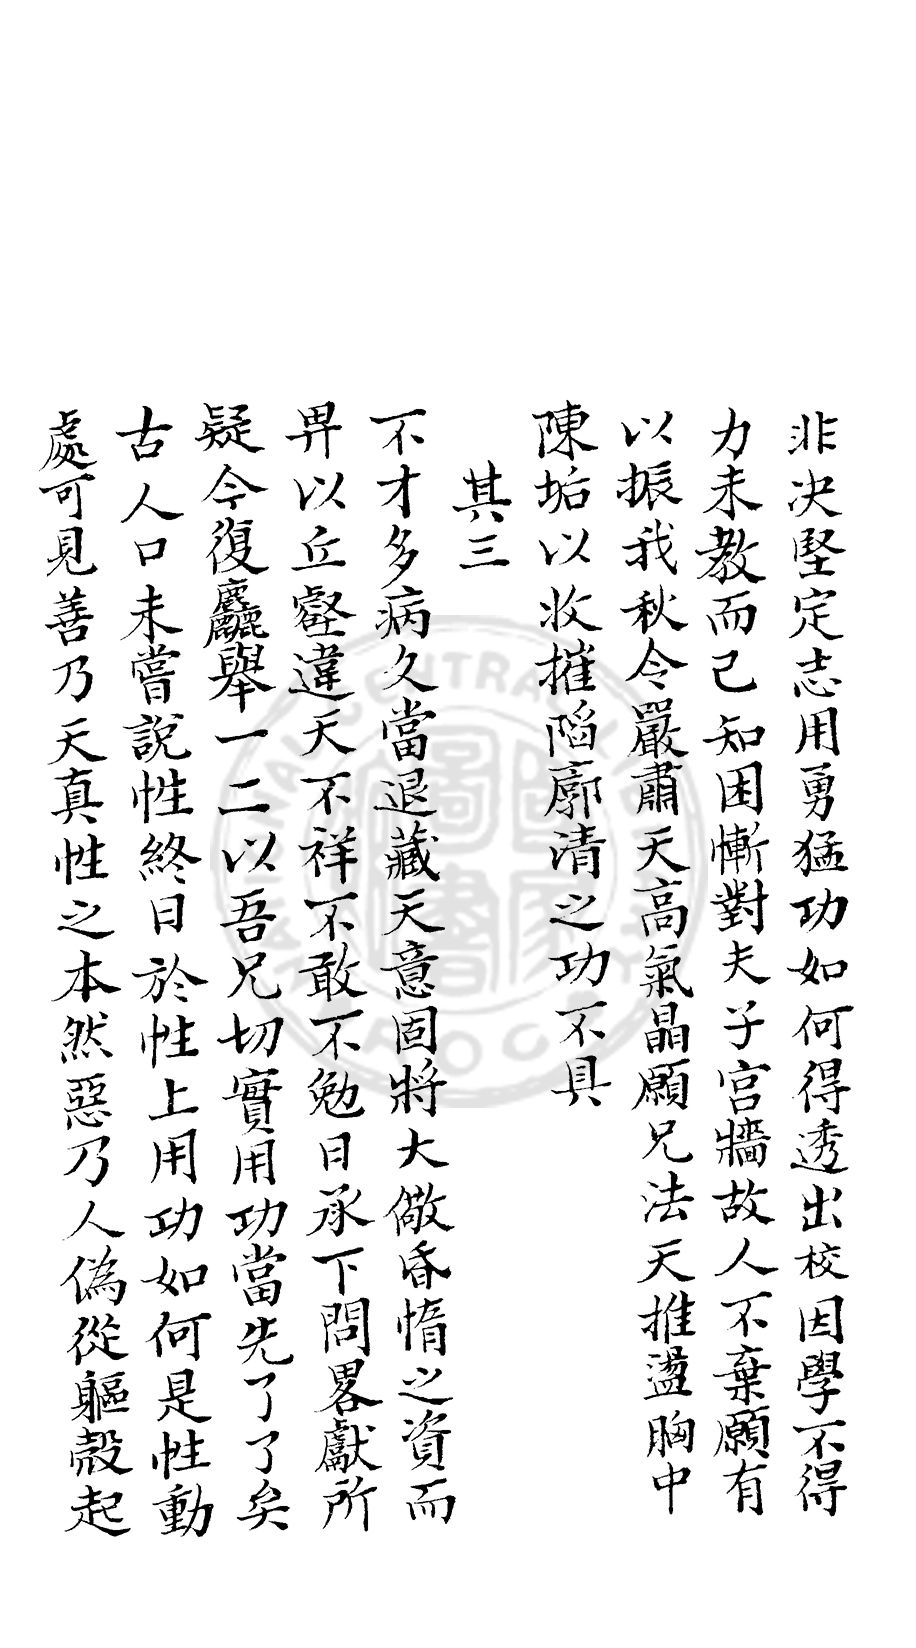 非决堅定志用勇猛功如何得透出校因學不得
力未教而已知困慚對夫子宮牆故人不棄願有
以振我秋令嚴肅天高氣晶願兄法天推盪胸中
陳垢以收摧陷廓清之功不具
其三
不才多病久當退藏天意固將大儆昏惰之資而
畀以丘壑違天不祥不敢不勉日承下問畧獻所
疑今復麤舉一二以吾兄切實用功當先了了矣
古人口未嘗說性終日於性上用功如何是性動
處可見善乃天真性之本然惡乃人偽從軀殼起
NATIONAL CENTRAL LIBRARY